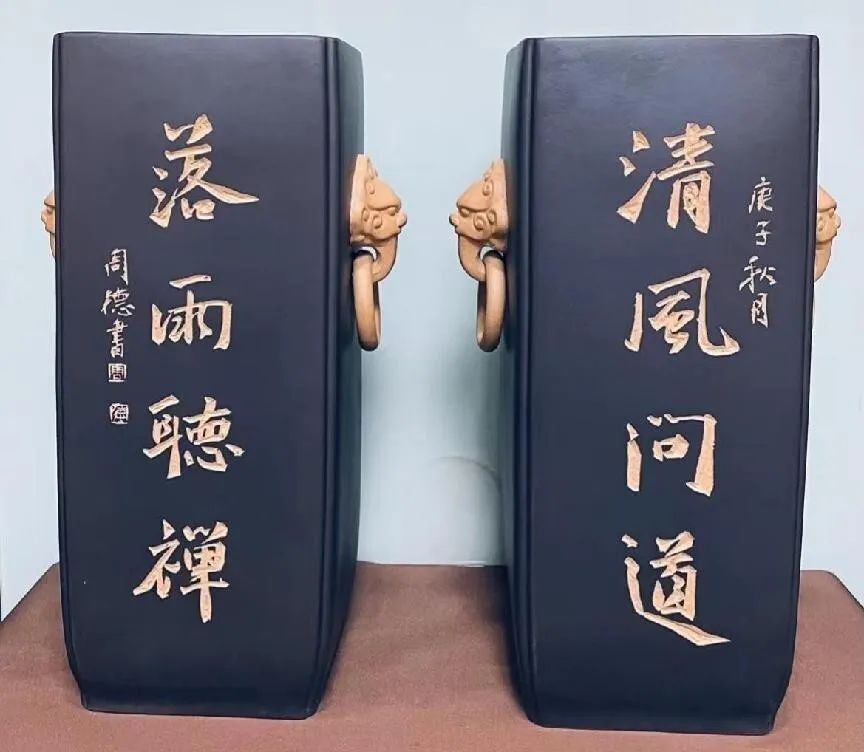 庚子秋月
清風问道
落雨聽禪
周德書